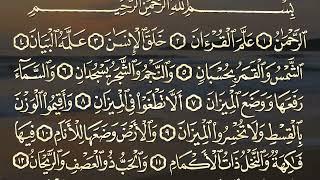 بِسْمِ اللَّهِ الرَّحْمَٰنِ الرَّحِيمِ
الرَّحْمَٰنُ ١ عَلَّمَ الْقُرْءَانَ ٢ خَلَقَ الْإِنسَٰنَ ٣ عَلَّمَهُ الْبَيَانَ ٤
الشَّمْسُ وَالْقَمَرُ بِحُسْبَانٍ ٥ وَالنَّجْمُ وَالشَّجَرُ يَسْجُدَانِ ٦ وَالسَّمَآءَ
رَفَعَهَا وَوَضَعَ الْمِيزَانَ ٧ أَلَّا تَطْغَوْا۟ فِي الْمِيزَانِ ٨ وَأَقِيمُوا۟ الْوَزْنَ
بِالْقِسْطِ وَلَا تُخْسِرُوا۟ الْمِيزَانَ ٩ وَالْأَرْضَ وَضَعَهَا لِلْأَنَامِ ١٠ فِيهَا
فَٰكِهَةٌ وَالنَّخْلُ ذَاتُ الْأَكْمَامِ ١١ وَالْحَبُّ ذُو الْعَصْفِ وَالرَّيْحَانُ ١٢